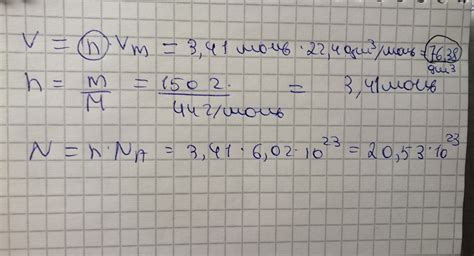 V = n · Vm = 3,41 моль · 22,4 дm³/моль = 76,38 дm³
n = m/M = 150 г. / 44 г/моль = 3,41 моль
N = n · NA = 3,41 · 6,02 · 10²³ = 20,53 · 10²³